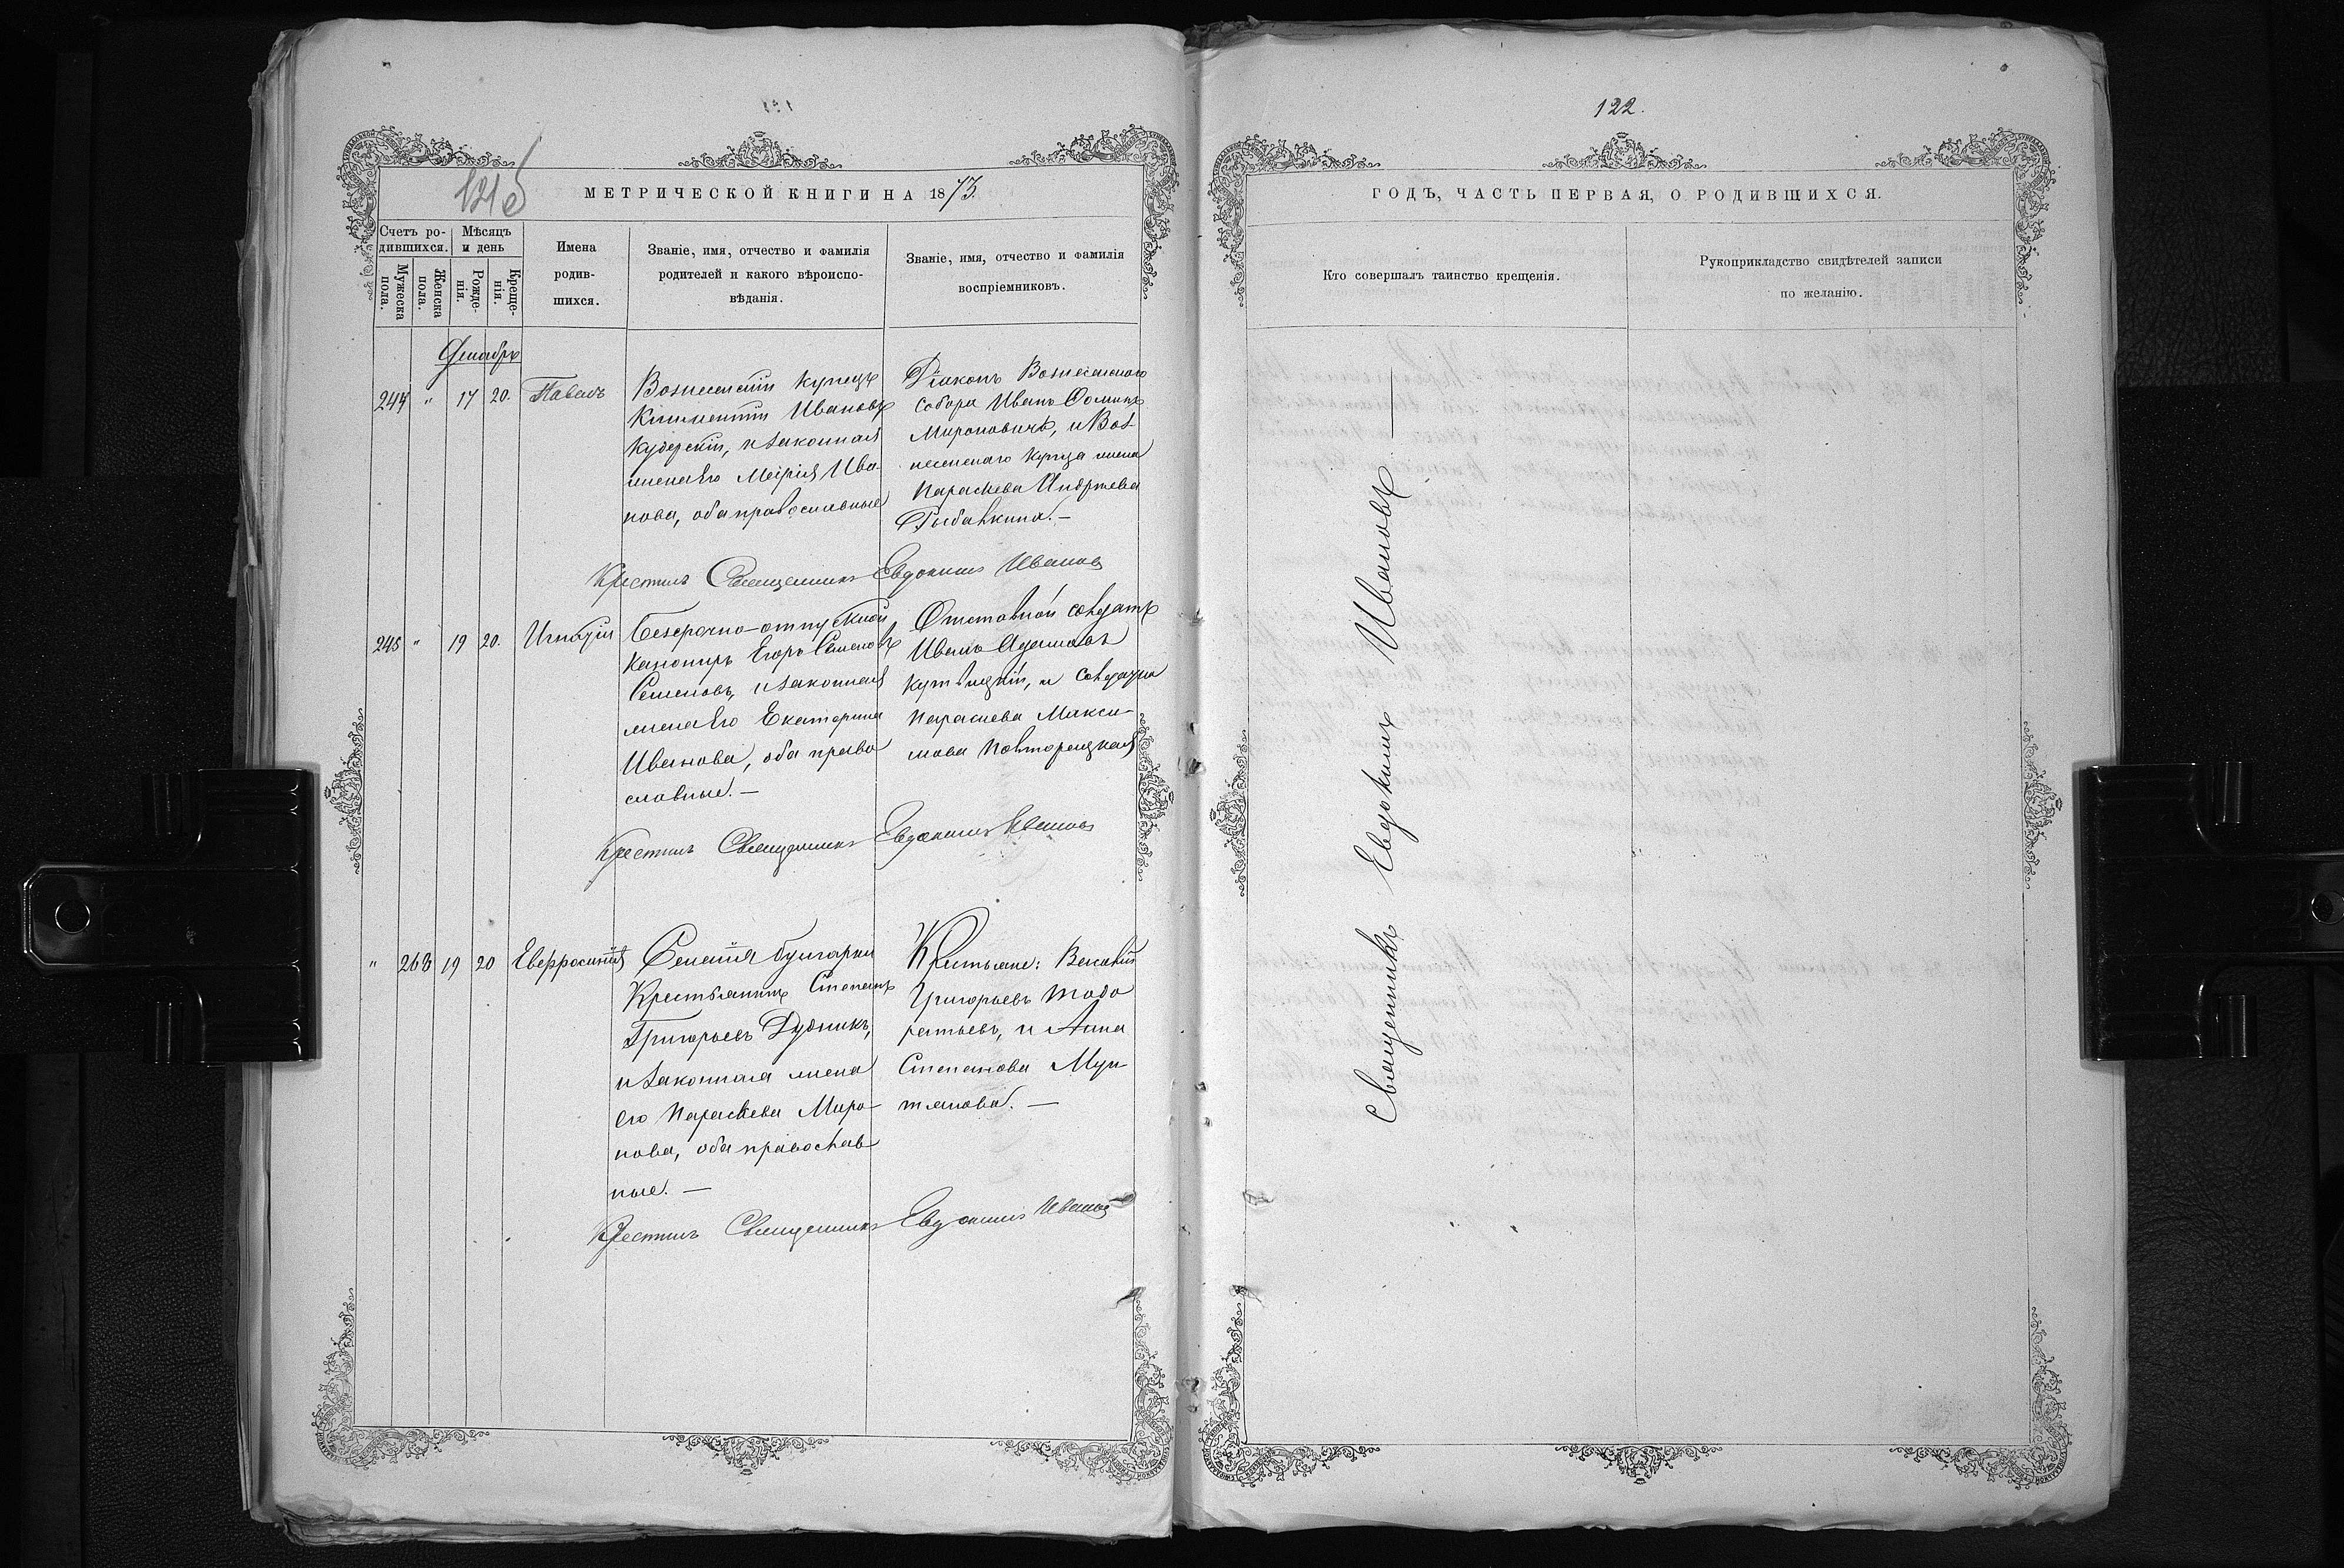 122.
МЕТРИЧЕСКОЙ КНИГИ НА 1873.
Счетъ родившихся.
Мѣсяцъ и день
Мужеска пола.
Женска пола.
Рожденія.
Крещенія.
Имена
родив-
шихся.
Званіе, имя, отчество и фамилія
родителей и какого вѣроиспо-
вѣданія.
Званіе, имя, отчество и фамилія
воспріемниковъ.
Декабрь
244 " 17 20. Павелъ
Вознесенскій купецъ
Климентій Ивановъ
Куберскій, и законная
жена его Марія Ива-
нова, оба православные
Діаконъ Вознесенского
собора Иванъ Ѳоминъ
Мироновичъ, и Воз-
несенского купца жена
Параскева Андреева
Рыбалкина. —
Крестилъ Священникъ Евдокимъ Ивановъ
245 " 19 20. Игнатій
Безсрочно-отпускной
канониръ Егоръ Семеновъ
Семеновъ, и законная
жена его Екатерина
Иванова, оба право
славные. —
Отставной солдатъ
Иванъ Адамовъ
и солдатка
Параскева Макси-
мова
Крестилъ Священникъ Евдокимъ Ивановъ
" 263 19 20 Евфросинія
Селенія Булгарки
Крестьянинъ Степанъ
Григорьевъ Дудникъ,
и законная жена
его Параскева Миро-
нова, оба православ
ные. —
Крестьяне: Василій
Григорьевъ Тодо
ратьевъ, и Анна
Степанова Мун-
тянова. —
Крестилъ Священникъ Евдокимъ Ивановъ
ГОДЪ, ЧАСТЬ ПЕРВАЯ, О РОДИВШИХСЯ.
Кто совершалъ таинство крещенія.
Рукоприкладство свидѣтелей записи
по желанію.
Священникъ Евдокимъ Ивановъ